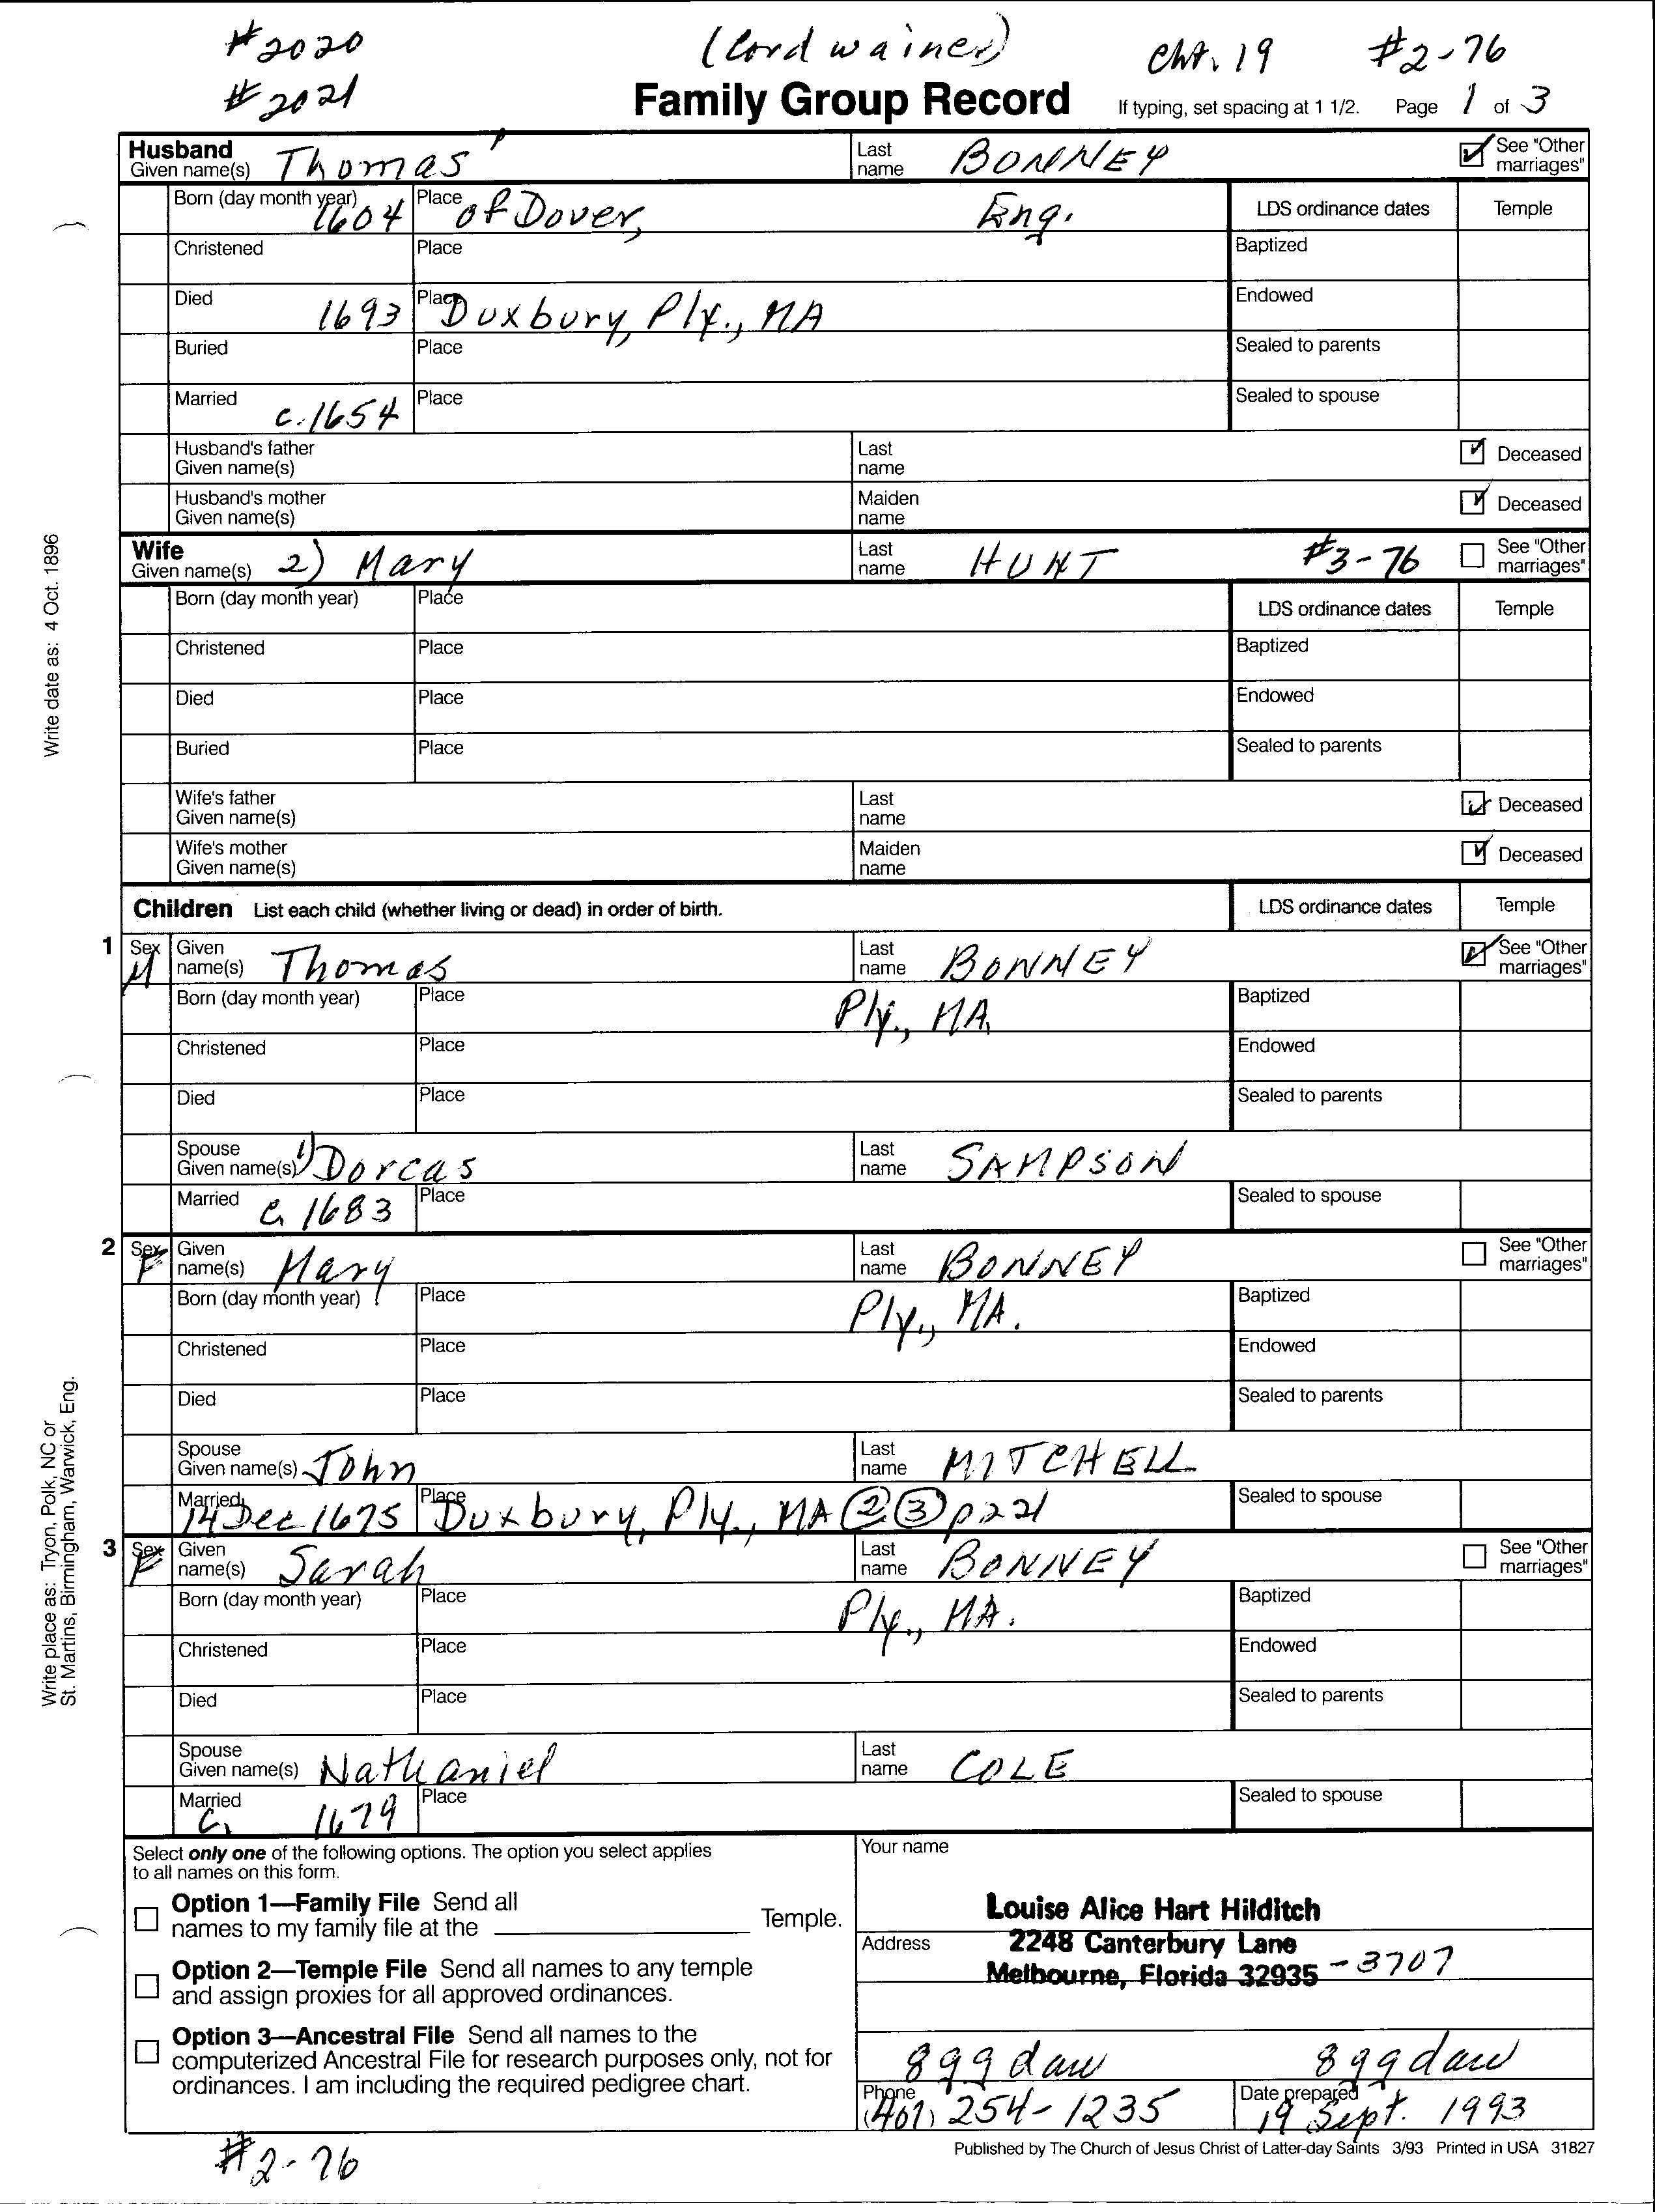 #2020 (Cordwainer) Cht. 19 #2-76
#2021 Family Group Record If typing, set spacing at 1 1/2. Page 1 of 3
Husband
Given name(s) Thomas Last name BONNEY See "Other marriages"
Born (day month year) 1604 Place of Dover, Eng. LDS ordinance dates Temple
Christened Place Baptized
Died 1693 Place Duxbury, Ply., MA Endowed
Buried Place Sealed to parents
Married c. 1654 Place Sealed to spouse
Husband's father Given name(s) Last name Deceased
Husband's mother Given name(s) Maiden name Deceased
Wife
Given name(s) 2) Mary Last name HUNT #3-76 See "Other marriages"
Born (day month year) Place LDS ordinance dates Temple
Christened Place Baptized
Died Place Endowed
Buried Place Sealed to parents
Wife's father Given name(s) Last name Deceased
Wife's mother Given name(s) Maiden name Deceased
Children List each child (whether living or dead) in order of birth. LDS ordinance dates Temple
1 Sex M Given name(s) Thomas Last name BONNEY See "Other marriages"
Born (day month year) Place Ply., MA. Baptized
Christened Place Endowed
Died Place Sealed to parents
Spouse Given name(s) 1) Dorcas Last name SAMPSON
Married c. 1683 Place Sealed to spouse
2 Sex F Given name(s) Mary Last name BONNEY See "Other marriages"
Born (day month year) Place Ply., MA. Baptized
Christened Place Endowed
Died Place Sealed to parents
Spouse Given name(s) John Last name MITCHELL
Married 14 Dec 1675 Place Duxbury, Ply., MA (2) (3) p221 Sealed to spouse
3 Sex F Given name(s) Sarah Last name BONNEY See "Other marriages"
Born (day month year) Place Ply., MA. Baptized
Christened Place Endowed
Died Place Sealed to parents
Spouse Given name(s) Nathaniel Last name COLE
Married c. 1679 Place Sealed to spouse
Select only one of the following options. The option you select applies
to all names on this form.
Option 1—Family File Send all
names to my family file at the Temple.
Option 2—Temple File Send all names to any temple
and assign proxies for all approved ordinances.
Option 3—Ancestral File Send all names to the
computerized Ancestral File for research purposes only, not for
ordinances. I am including the required pedigree chart.
Your name
Louise Alice Hart Hilditch
Address 2248 Canterbury Lane
Melbourne, Florida 32935 -3707
899
899
Phone (407) 254-1235 Date prepared 19 Sept. 1993
Published by The Church of Jesus Christ of Latter-day Saints 3/93 Printed in USA 31827
#2-76
Write date as: 4 Oct. 1896
Write place as: Tryon, Polk, NC or
St. Martins, Birmingham, Warwick, Eng.